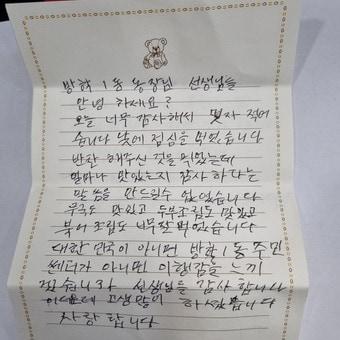 방학 1동 동장님 선생님들
안녕 하세요?
오늘 너무 감사해서 몇자 적어
습니다 낮에 점심을 먹었습니다
반찬 해주신 것을 먹었는데
얼마나 맛있는지 감사 하다는
말씀을 안드릴수 없었습니다
무국도 맛있고 두부조림도 맛있고
북어 조림도 너무잘 먹었습니다
대한 민국이 아니면 방학 1동 주민
쎈터가 아니면 이행감을 느끼
겠습니까 선생님들 감사 합니다
고생많이 하셨습니다
사랑 합니다